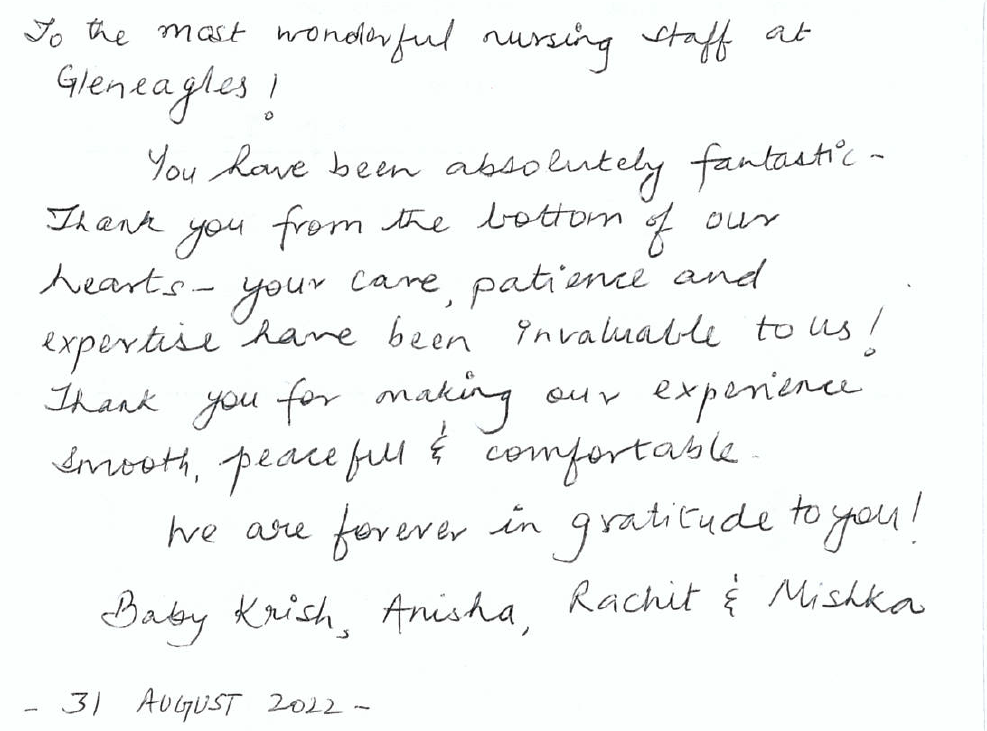 To the most wonderful nursing staff at
Gleneagles!
You have been absolutely fantastic -
Thank you from the bottom of our
hearts - your care, patience and
expertise have been invaluable to us!
Thank you for making our experience
smooth, peacefull & comfortable.
We are forever in gratitude to you!
Baby Krish, Anisha, Rachit & Mishka
- 31 AUGUST 2022 -